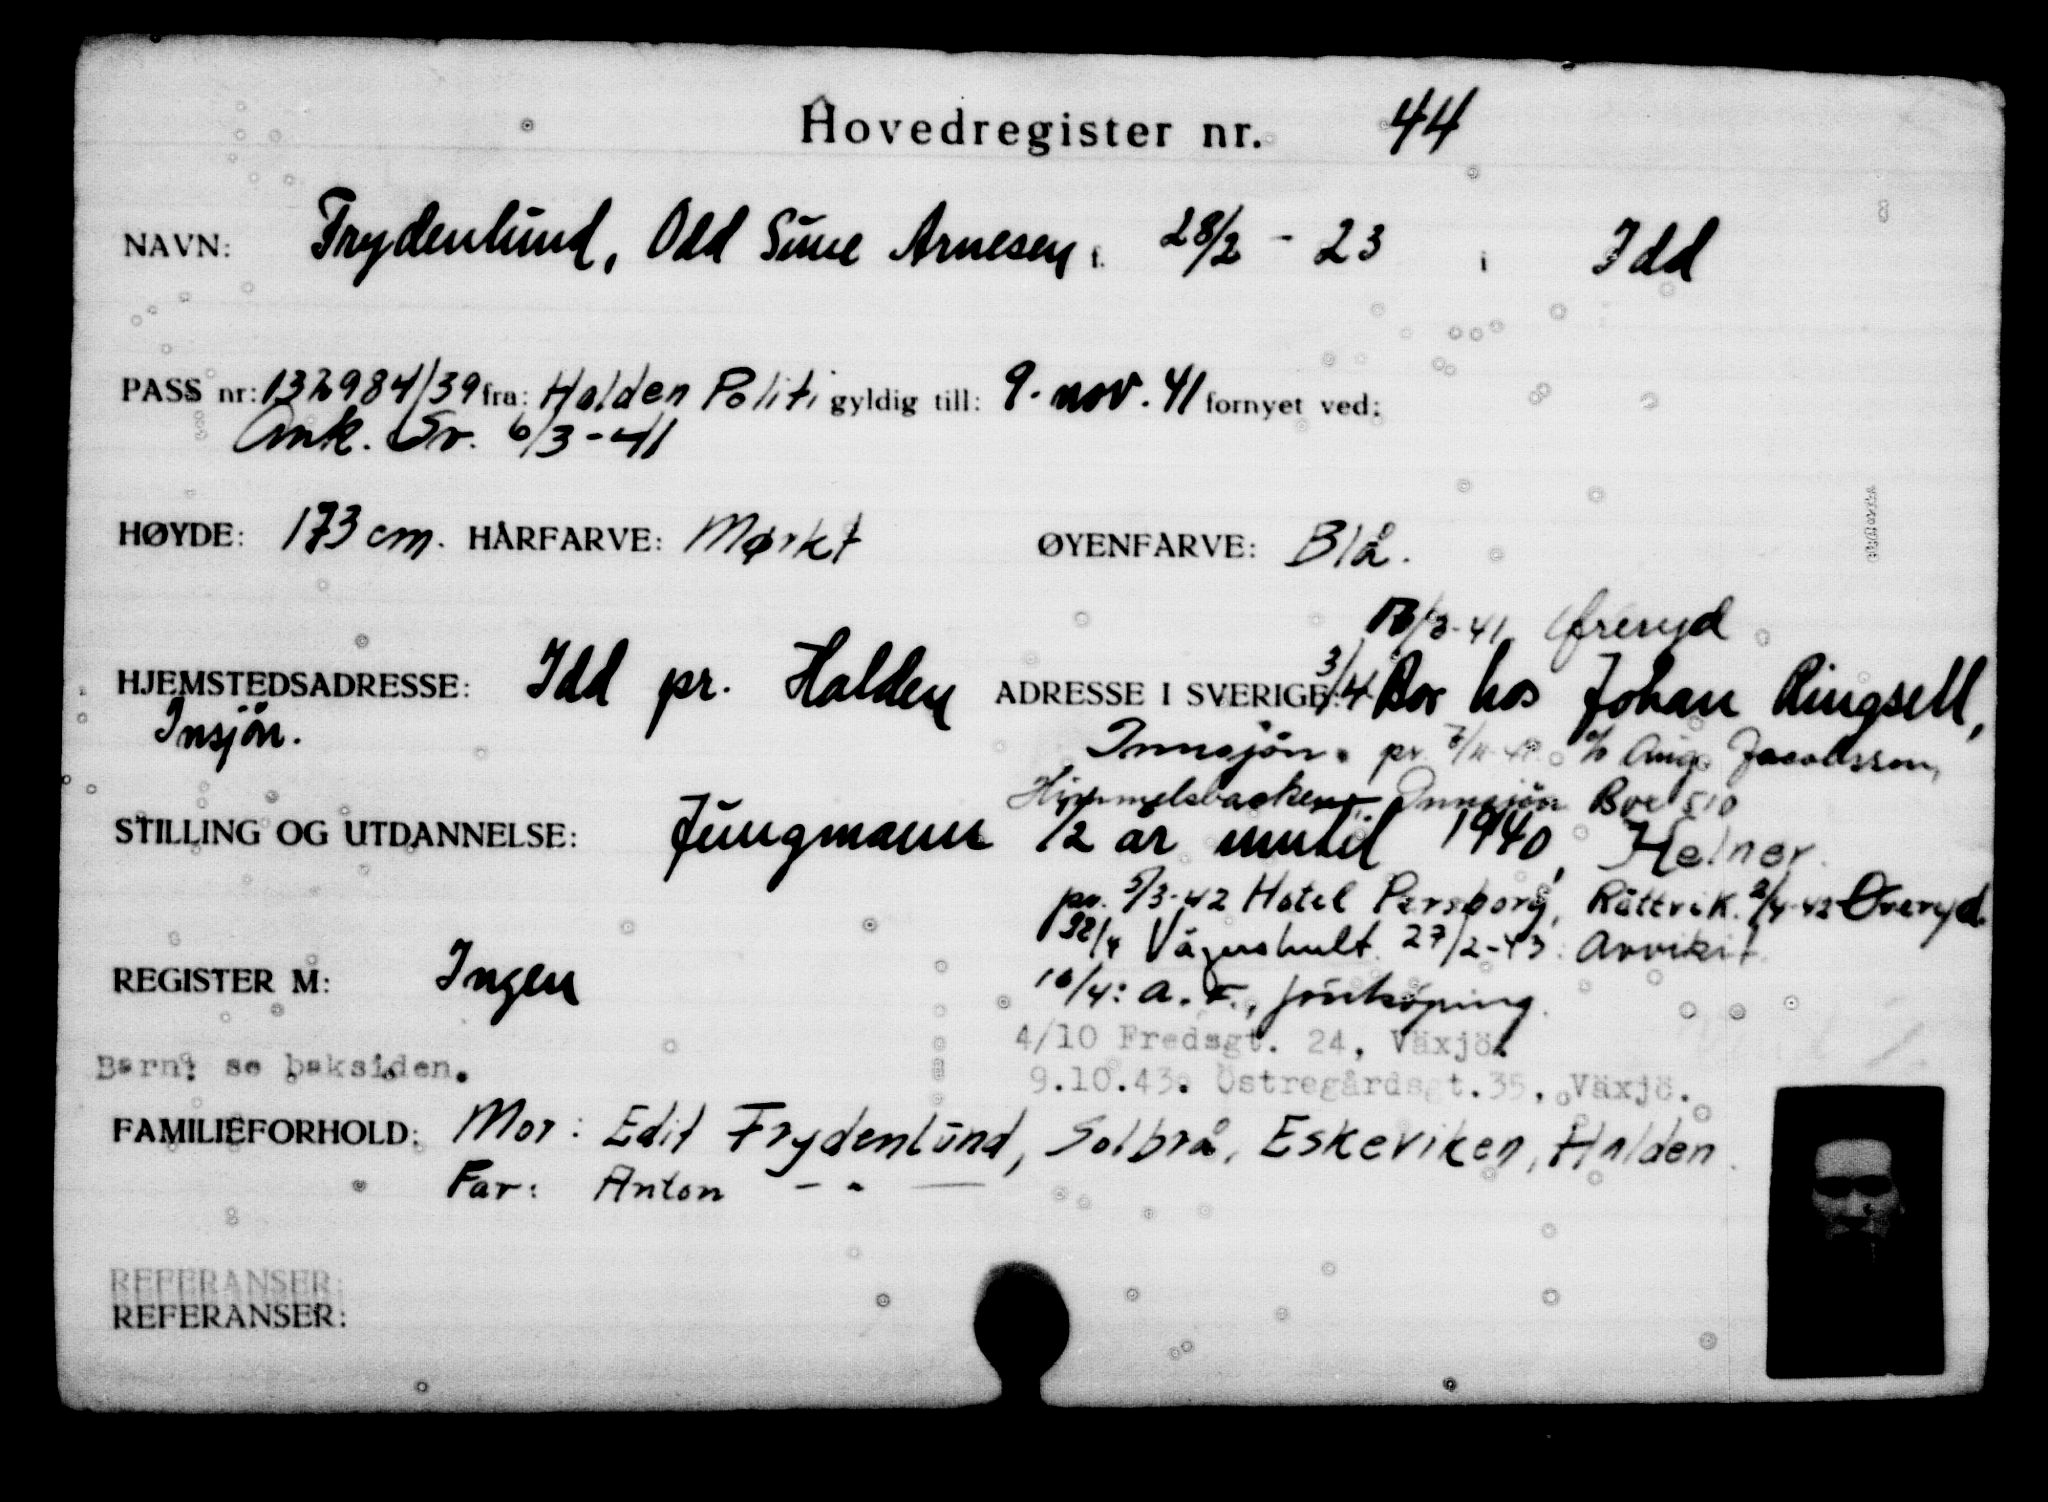 Hovedregister nr. 44
NAVN: Frydenlund, Odd Sune Arnesen f. 28/2 - 23 i Idd
PASS nr: 132984/39 fra: Halden Politi gyldig till: 9. nov. 41 fornyet ved:
Ank. Sv. 6/3-41
HØYDE: 173 cm. HÅRFARVE: Mørkt ØYENFARVE: Blå.
/3-41 Øreryd
HJEMSTEDSADRESSE: Idd pr. Halden ADRESSE I SVERIGE: 3/4 Bor hos Johan Ringsell,
Insjön.
Innsjön. pr. c/o Aug. Jacobsson,
Himmelsbacken, Innsjön Box 510
STILLING OG UTDANNELSE: Jungmann 1/2 år inntil 1940, Helner.
pr. 5/3-42 Hotel Persborg, Rättvik. 2/4-42 Øreryd.
/4 Vägershult. 27/2-43:
REGISTER M: Ingen
16/4: A.F., Jönköping.
4/10 Fredsgt. 24, Växjö.
Barn: se baksiden.
9.10.43. Östregårdsgt.35, Växjö.
FAMILIEFORHOLD: Mor: Edit Frydenlund, Solbrå, Eskeviken, Halden.
Far: Anton - " -
REFERANSER:
REFERANSER: